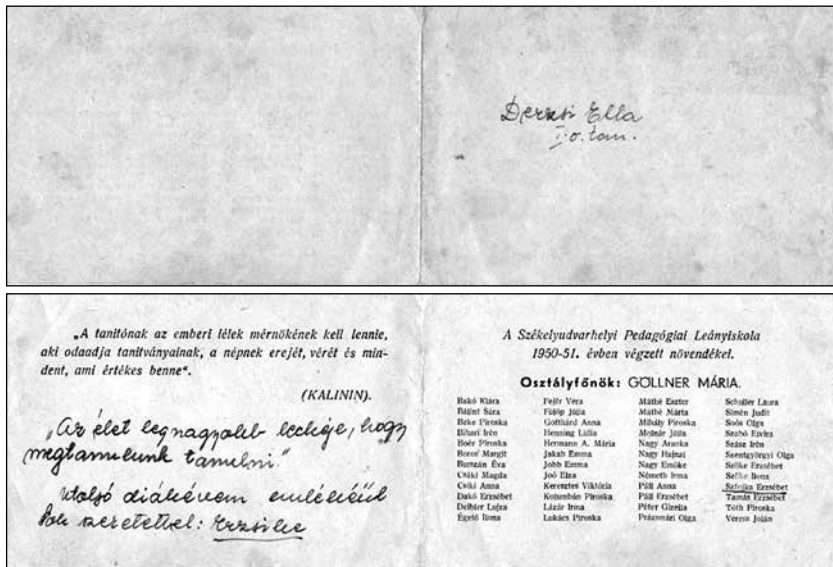 Derzsi Ella
I. o. tan.
„A tanítónak az emberi lélek mérnökének kell lennie,
aki odaadja tanítványainak, a népnek erejét, vérét és min-
dent, ami értékes benne“.
(KALININ).
„Az élet legnagyobb leckéje, hogy
megtanulunk tanulni.”
Utolsó diákévem emlékéül
Sok szeretettel: Erzsike
A Székelyudvarhelyi Pedagógiai Leányiskola
1950-51. évben végzett növendékei.
Osztályfőnök: GÖLLNER MÁRIA.
Bakó Klára
Bálint Sára
Béke Piroska
Bihari Irén
Boér Piroska
Boros Margit
Burszán Éva
Csáki Magda
Csiki Anna
Dakó Erzsébet
Deibler Lujza
Égető Ilona
Fejér Vera
Fülöp Júlia
Gotthárd Anna
Henning Lídia
Hermann A. Mária
Jakab Emma
Jobb Emma
Joó Elza
Keresztes Viktória
Kolumbán Piroska
Lázár Irma
Lukács Piroska
Máthé Eszter
Máthé Márta
Mihály Piroska
Molnár Júlia
Nagy Aranka
Nagy Hajnal
Nagy Emőke
Németh Irma
Páll Anna
Páll Erzsébet
Péter Gizella
Prázsmári Olga
Schuller Laura
Simén Judit
Soós Olga
Szabó Etelka
Szász Irén
Szentgyörgyi Olga
Szőke Erzsébet
Szőke Ilona
Sztojka Erzsébet
Tamás Erzsébet
Tóth Piroska
Veress Jolán